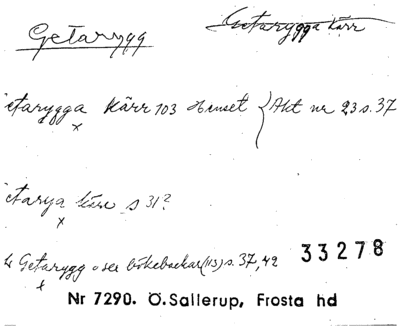 Getarygg
Getarygga kärr
etarygga Kärr 103 Huset { Akt nr 23 s. 37
x
etarya kärr s 31?
x
Getarygg o se bökebackar (113) s. 37, 42
x
33278
Nr 7290. Ö.Sallerup, Frosta hd